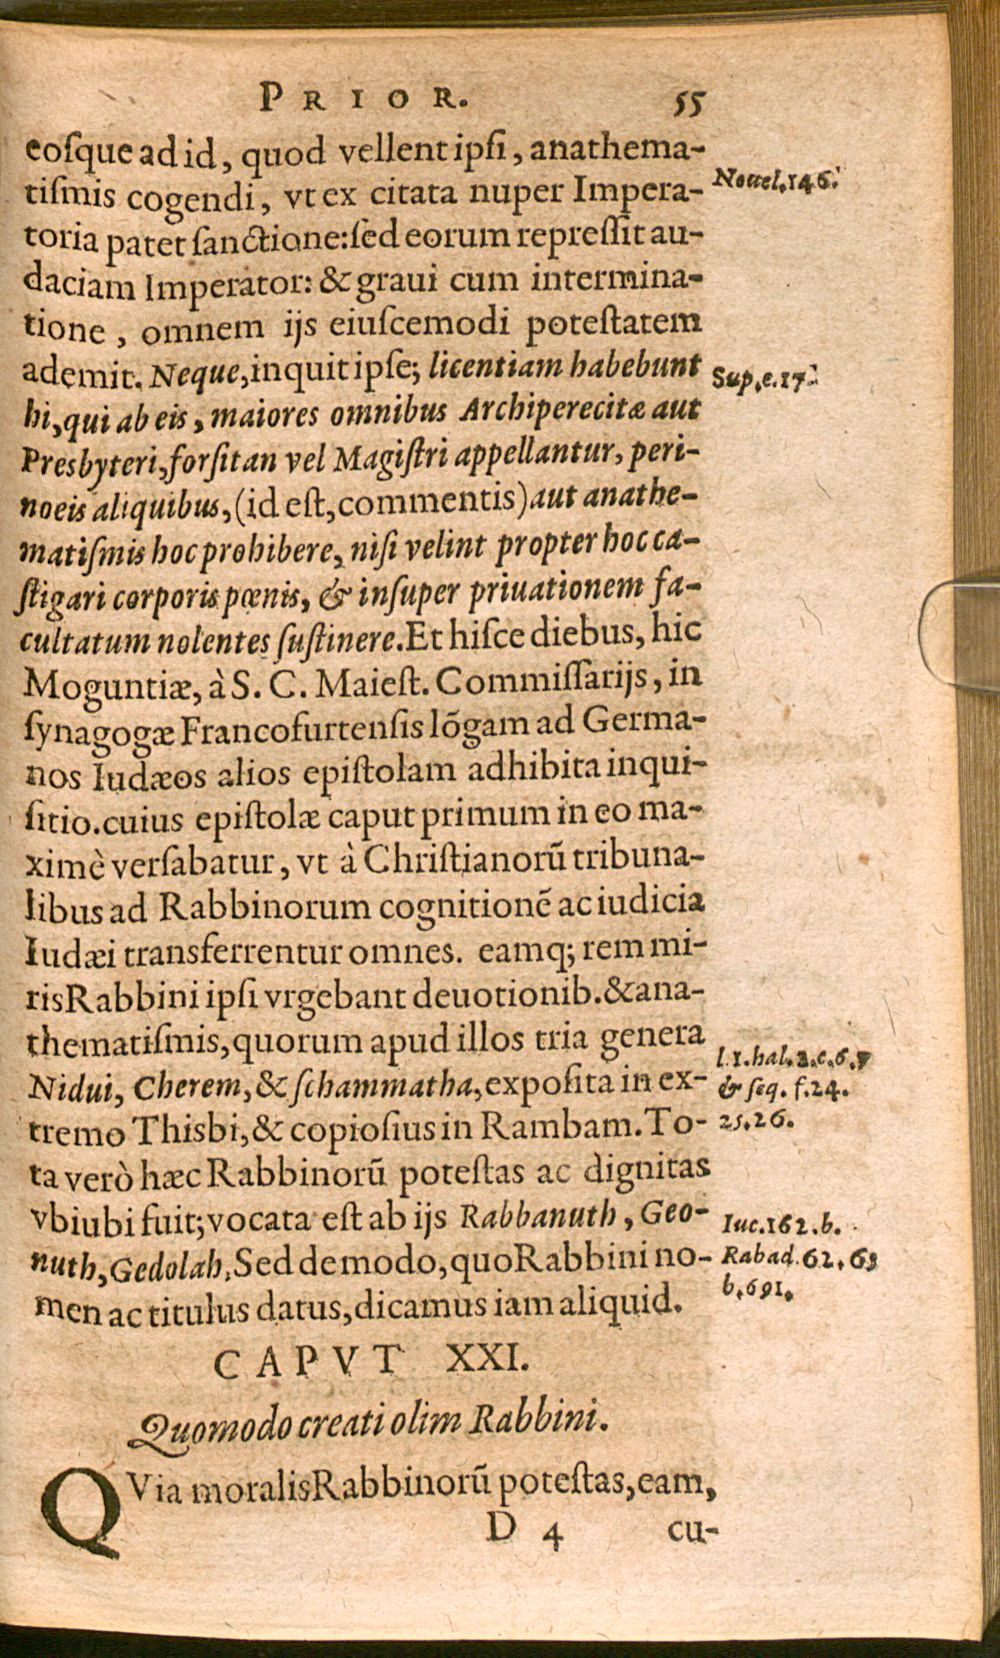 PRIOR. 55
eoſque ad id, quod vellent ipſi, anathema-
tiſmis cogendi, vt ex citata nuper Impera-
Nouel. 146.
toria patet ſanctione: ſed eorum repreſſit au-
daciam Imperator: & graui cum intermina-
tione, omnem ijs eiuſcemodi poteſtatem
ademit. Neque, inquit ipſe; licentiam habebunt
Sup. c. 17.
hi, qui ab eis, maiores omnibus Archiperecitæ aut
Presbyteri, forſitan vel Magiſtri appellantur, peri-
noeis aliquibus, (id eſt, commentis) aut anathe-
matiſmis hoc prohibere, niſi velint propter hoc ca-
ſtigari corporis pœnis, & inſuper priuationem fa-
cultatum nolentes ſuſtinere. Et hiſce diebus, hic
Moguntiæ, à S. C. Maieſt. Commiſſarijs, in
ſynagogæ Francofurtenſis lõgam ad Germa-
nos Iudæos alios epiſtolam adhibita inqui-
ſitio. cuius epiſtolæ caput primum in eo ma-
ximè verſabatur, vt à Chriſtianorũ tribuna-
libus ad Rabbinorum cognitionẽ ac iudicia
Iudæi transferrentur omnes. eamq; rem mi-
ris Rabbini ipſi vrgebant deuotionib. & ana-
thematiſmis, quorum apud illos tria genera
l. 1. hal. 2. c. 6. 7
Nidui, Cherem, & ſchammatha, expoſita in ex-
& ſeq. f. 24.
tremo Thisbi, & copioſius in Rambam. To-
25. 26.
ta verò hæc Rabbinorũ poteſtas ac dignitas
vbiubi fuit; vocata eſt ab ijs Rabbanuth, Geo-
Iuc. 162. b.
nuth, Gedolah. Sed de modo, quo Rabbini no-
Rabad. 62. 69
men ac titulus datus, dicamus iam aliquid.
b. 691.
CAPVT XXI.
Quomodo creati olim Rabbini.
QVia moralis Rabbinorũ poteſtas, eam,
D 4 cu-